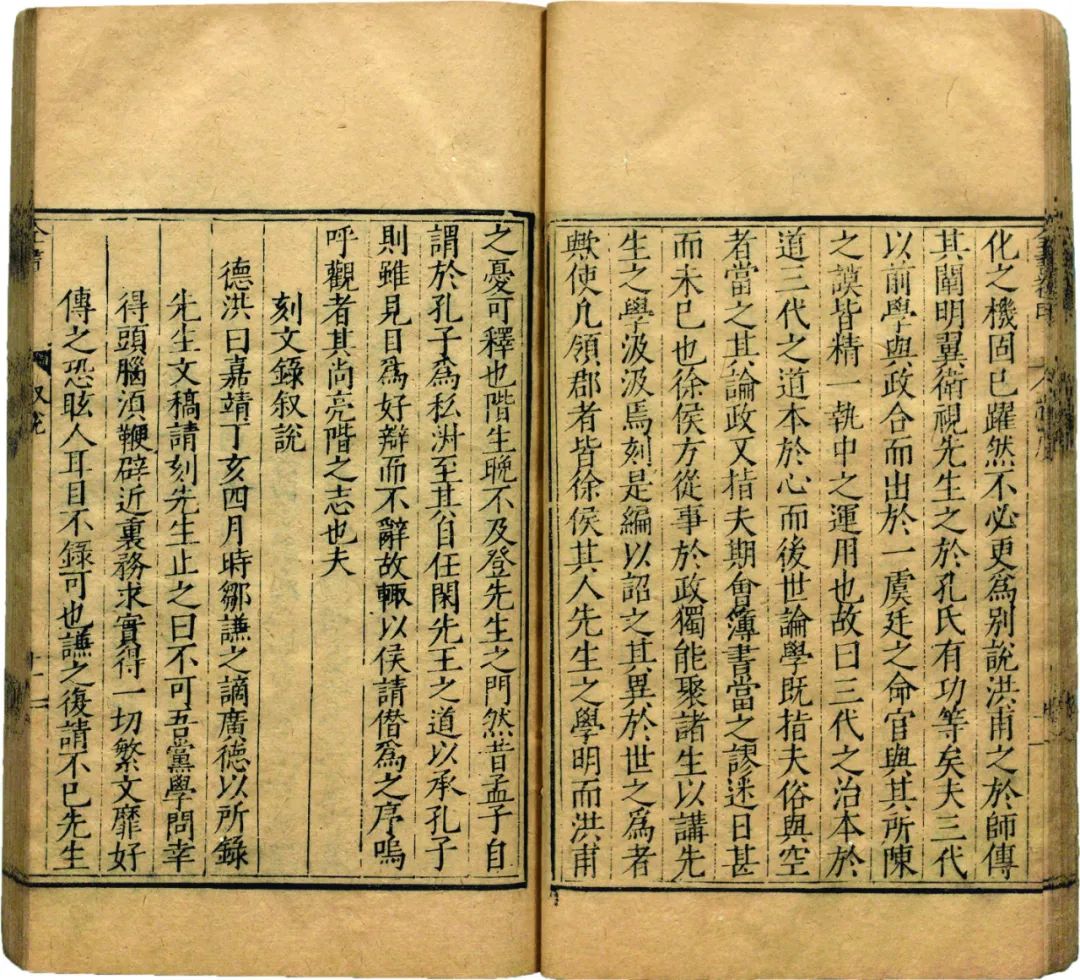 化之機固已躍然不必更爲別說洪甫之於師傳
其闡明翼衛視先生之於孔氏有功等矣夫三代
以前學與政合而出於一虞廷之命官與其所陳
之謨皆精一執中之運用也故曰三代之治本於
道三代之道本於心而後世論學既指夫俗與空
者當之其論政又指夫期會簿書當之謬迷日甚
而未已也徐侯方從事於政獨能聚諸生以講先
生之學汲汲焉刻是編以詔之其異於世之爲者
歟使凡領郡者皆徐侯其人先生之學明而洪甫
之憂可釋也階生晚不及登先生之門然昔孟子自
謂於孔子爲私淑至其自任閑先王之道以承孔子
則雖見目爲好辯而不辭故輙以侯請僣爲之序嗚
呼觀者其尚亮階之志也夫
刻文錄叙說
德洪曰嘉靖丁亥四月時鄒謙之謫廣德以所錄
先生文稿請刻先生止之曰不可吾黨學問幸
得頭腦湏鞭辟近裏務求實得一切繁文靡好
傳之恐眩人耳目不錄可也謙之復請不已先生
全書
叙說